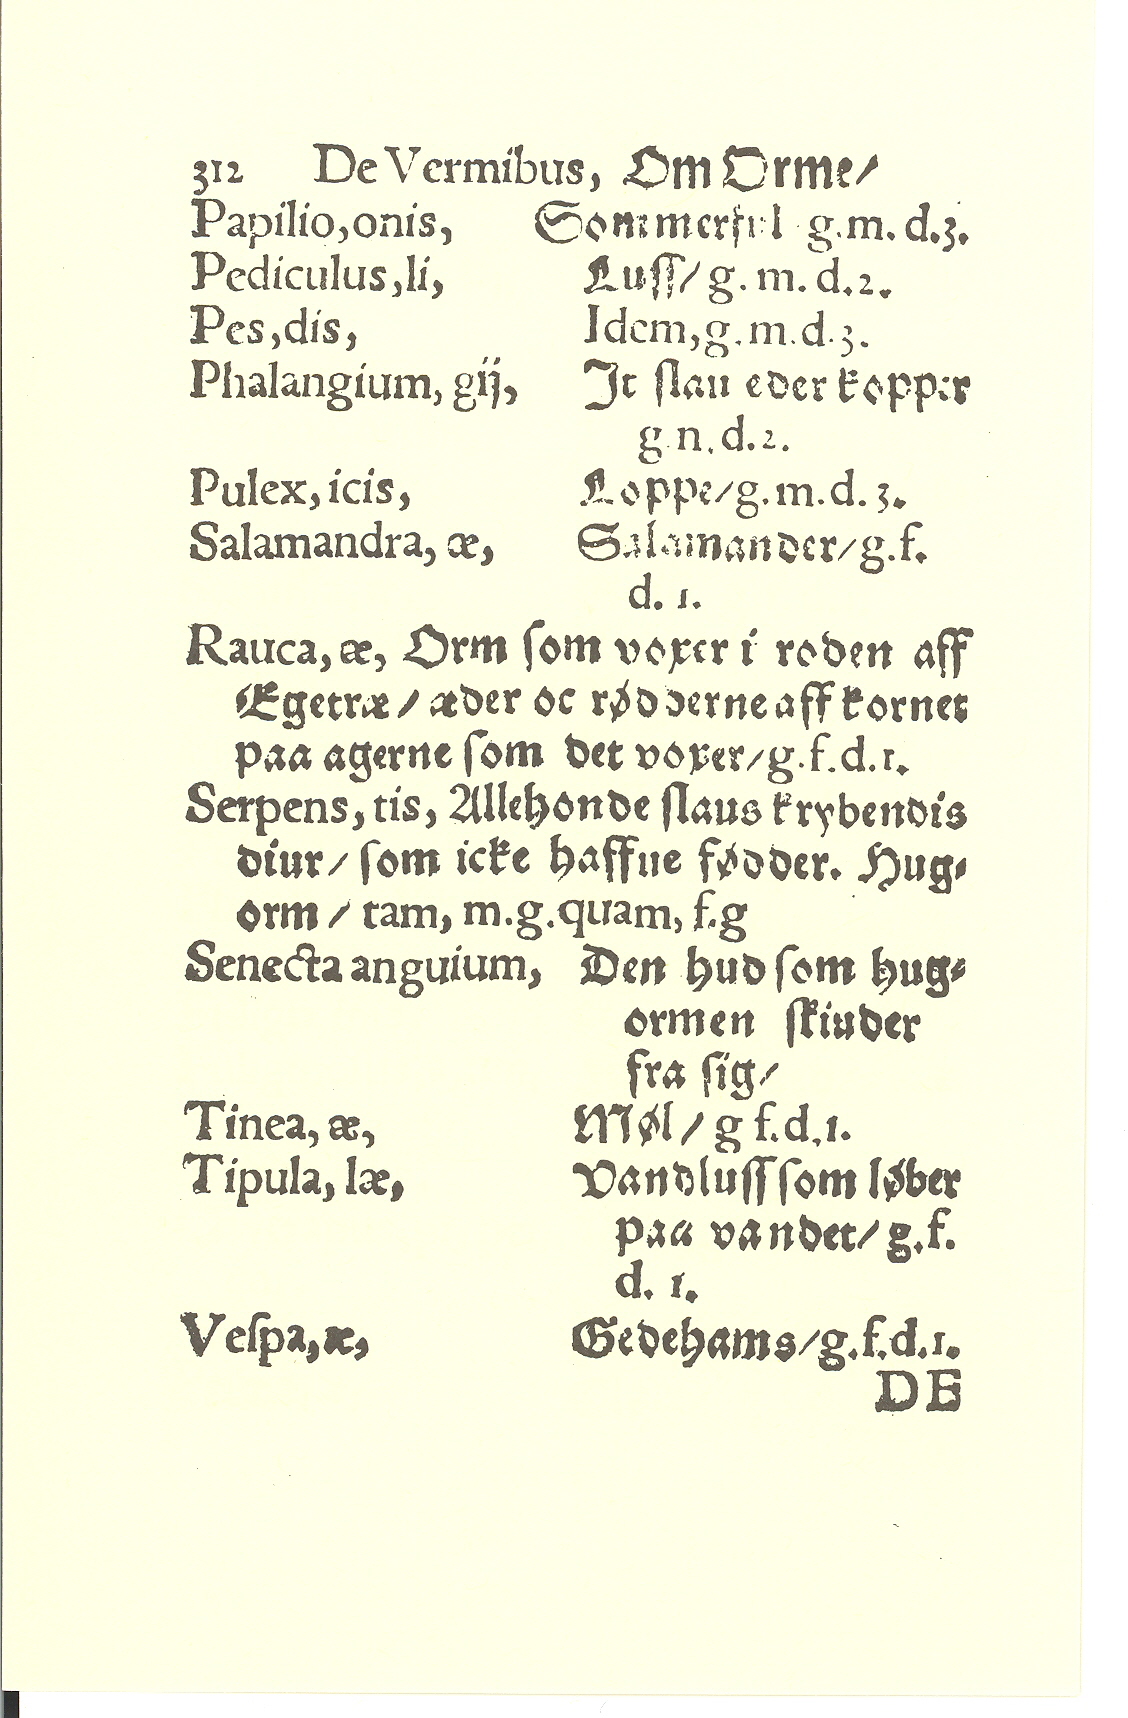 312 De Vermibus, Om Orme/
Papilio, onis, Sommerful g.m.d.3.
Pediculus, li, Luſſ/ g. m. d.2.
Pes, dis, Idem, g.m.d.3.
Phalangium, gij, It ſlau eder kopper
g n. d.2.
Pulex, icis, Loppe/ g.m.d.3.
Salamandra, æ, Salamander/ g.f.
d. 1.
Rauca, æ, Orm ſom voxer i roden aff
Egetræ/ æder oc rødderne aff kornet
paa agerne ſom det voxer/ g.f.d.1.
Serpens, tis, Allehonde ſlaus krybendis
diur/ ſom icke haffue fødder. Hug⸗
orm/ tam, m.g.quam, f.g
Senecta anguium, Den hud ſom hug⸗
ormen ſkiuder
fra ſig/
Tinea, æ, Møl/ g f.d.1.
Tipula, læ, Vandluſſ ſom løber
paa vandet/ g.f.
d. 1.
Veſpa, æ, Gedehams/ g.f.d.1.
DE